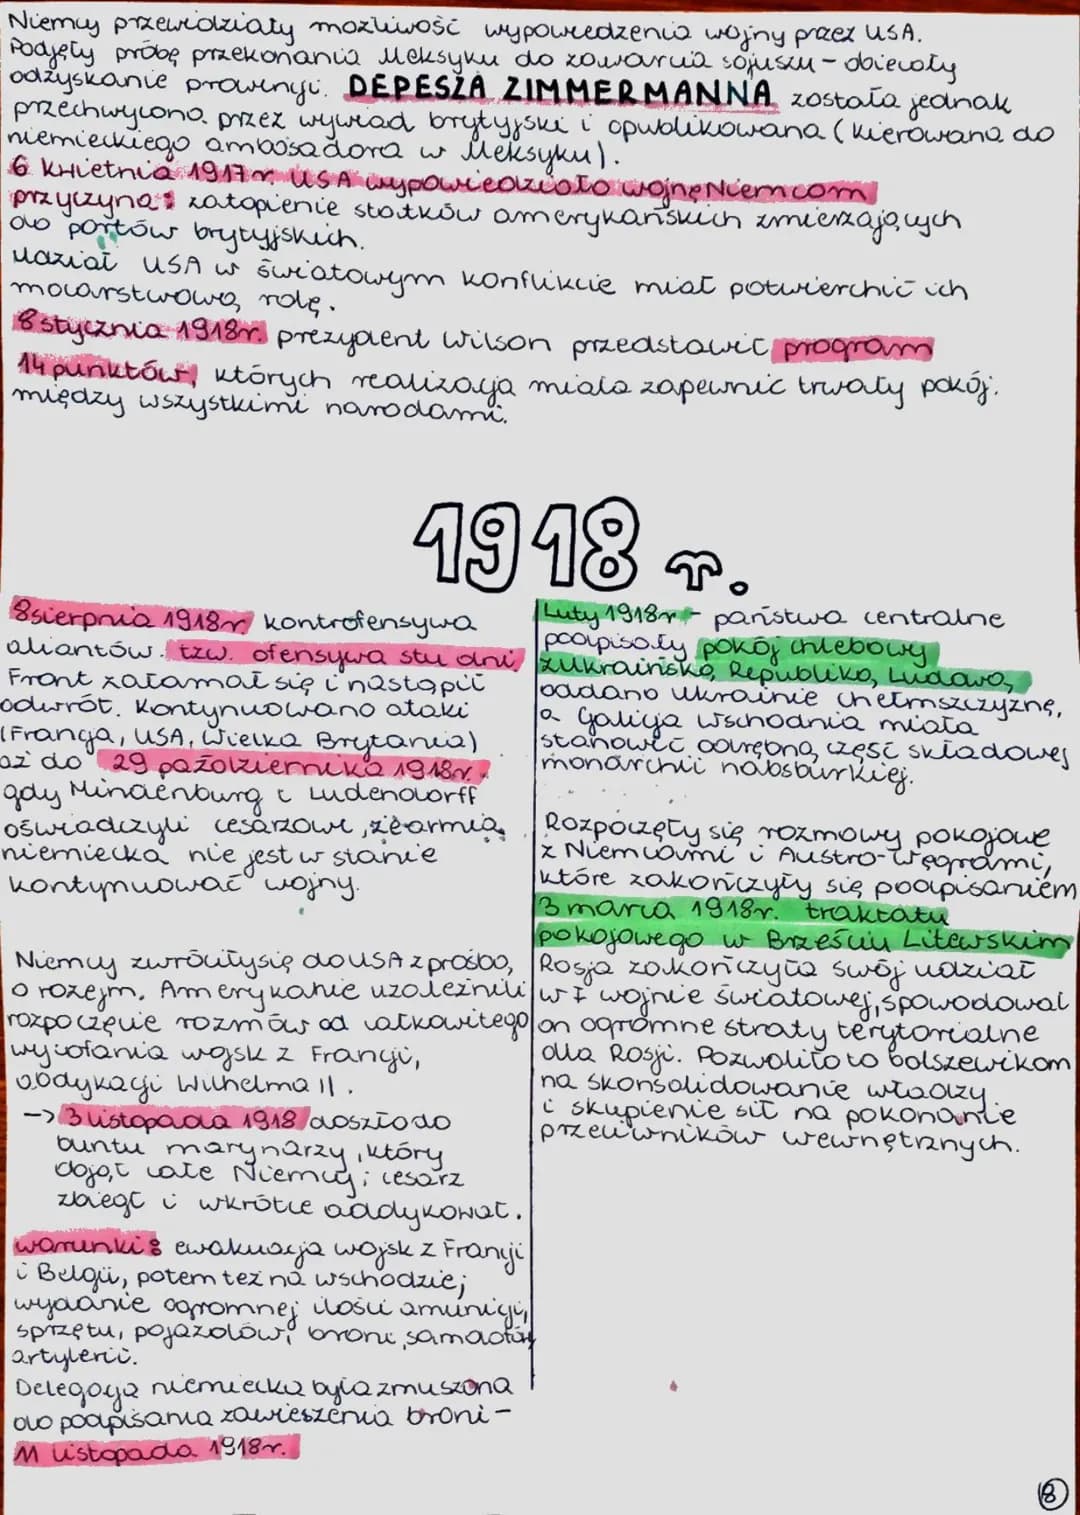 Niemcy przewidziały możliwość wypowiedzenia wojny przez USA.
Podjęły próbę przekonania Meksyku do zawarcia sojuszu - obiecały
odzyskanie prowincji. DEPESZA ZIMMERMANNA została jednak
przechwycona przez wywiad brytyjski i opublikowana (kierowana do
niemieckiego ambasadora w Meksyku).
6 kwietnia 1917r USA wypowiedziało wojnę Niemcom
przyczyna: zatopienie statków amerykańskich zmierzających
do portów brytyjskich.
Udział USA w światowym konflikcie miał potwierdzić ich
mocarstwową rolę.
8 stycznia 1918r. prezydent Wilson przedstawił program
14 punktów, których realizacja miała zapewnić trwały pokój
między wszystkimi narodami.
1918 r.
8 sierpnia 1918r. kontrofensywa
aliantów. tzw. ofensywa stu dni,
Front załamał się i nastąpił
odwrót. Kontynuowano ataki
(Francja, USA, Wielka Brytania)
aż do 29 października 1918r.
gdy Hindenburg i Ludendorff
oświadczyli cesarzowi, że armia
niemiecka nie jest w stanie
kontynuować wojny.
Niemcy zwróciły się do USA z prośbą,
o rozejm. Amerykanie uzależnili
rozpoczęcie rozmów od całkowitego
wycofania wojsk z Francji,
abdykacji Wilhelma II.
-> 3 listopada 1918 doszło do
buntu marynarzy, który
objął całe Niemcy; cesarz
zbiegł i wkrótce abdykował.
warunki: ewakuacja wojsk z Francji
i Belgii, potem też na wschodzie;
wydanie ogromnej ilości amunicji,
sprzętu, pojazdów, broni, samolotów
artylerii.
Delegacja niemiecka była zmuszona
do podpisania zawieszenia broni -
11 listopada 1918r.
Luty 1918r - państwa centralne
podpisały pokój chlebowy
z Ukraińską Republiką Ludową,
oddano Ukrainie Chełmszczyznę,
a Galicja Wschodnia miała
stanowić odrębną część składowej
monarchii habsburskiej.
Rozpoczęły się rozmowy pokojowe
z Niemcami i Austro-Węgrami,
które zakończyły się podpisaniem
3 marca 1918r. traktatu
pokojowego w Brześciu Litewskim
Rosja zakończyła swój udział
w I wojnie światowej, spowodował
on ogromne straty terytorialne
dla Rosji. Pozwoliło to bolszewikom
na skonsolidowanie władzy
i skupienie sił na pokonanie
przeciwników wewnętrznych.
8